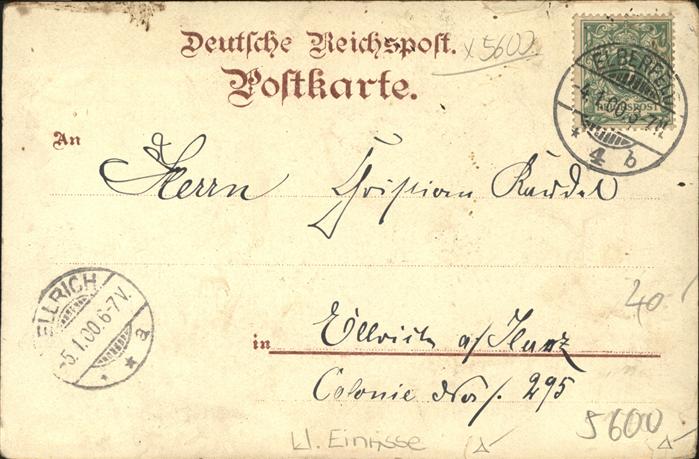 Deutsche Reichspost.
x 5600
Postkarte.
ELBERFELD
4.1.00.6-7N.
REICHSPOST
* 4 b
An
Herrn Christian Kändel
ELLRICH
5.1.00.6-7V.
* * a
40
in Ellrich a/Harz
Colonie No. 295
5600
kl. Einrisse